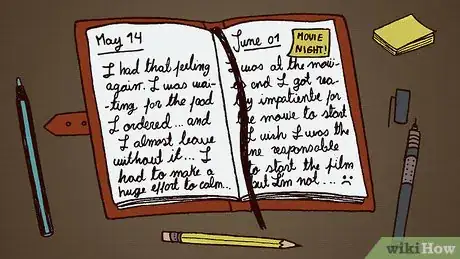 May 14
I had that feeling
again. I was wai-
ting for the food
I ordered... and
I almost leave
without it... I
had to make a
huge effort to calm...
June 01
MOVIE
NIGHT!
I was at the movi-
es and I got rea-
lly impatiente for
the movie to start
I wish I was the
one responsable
to start the film
but I'm not...
wikiHow